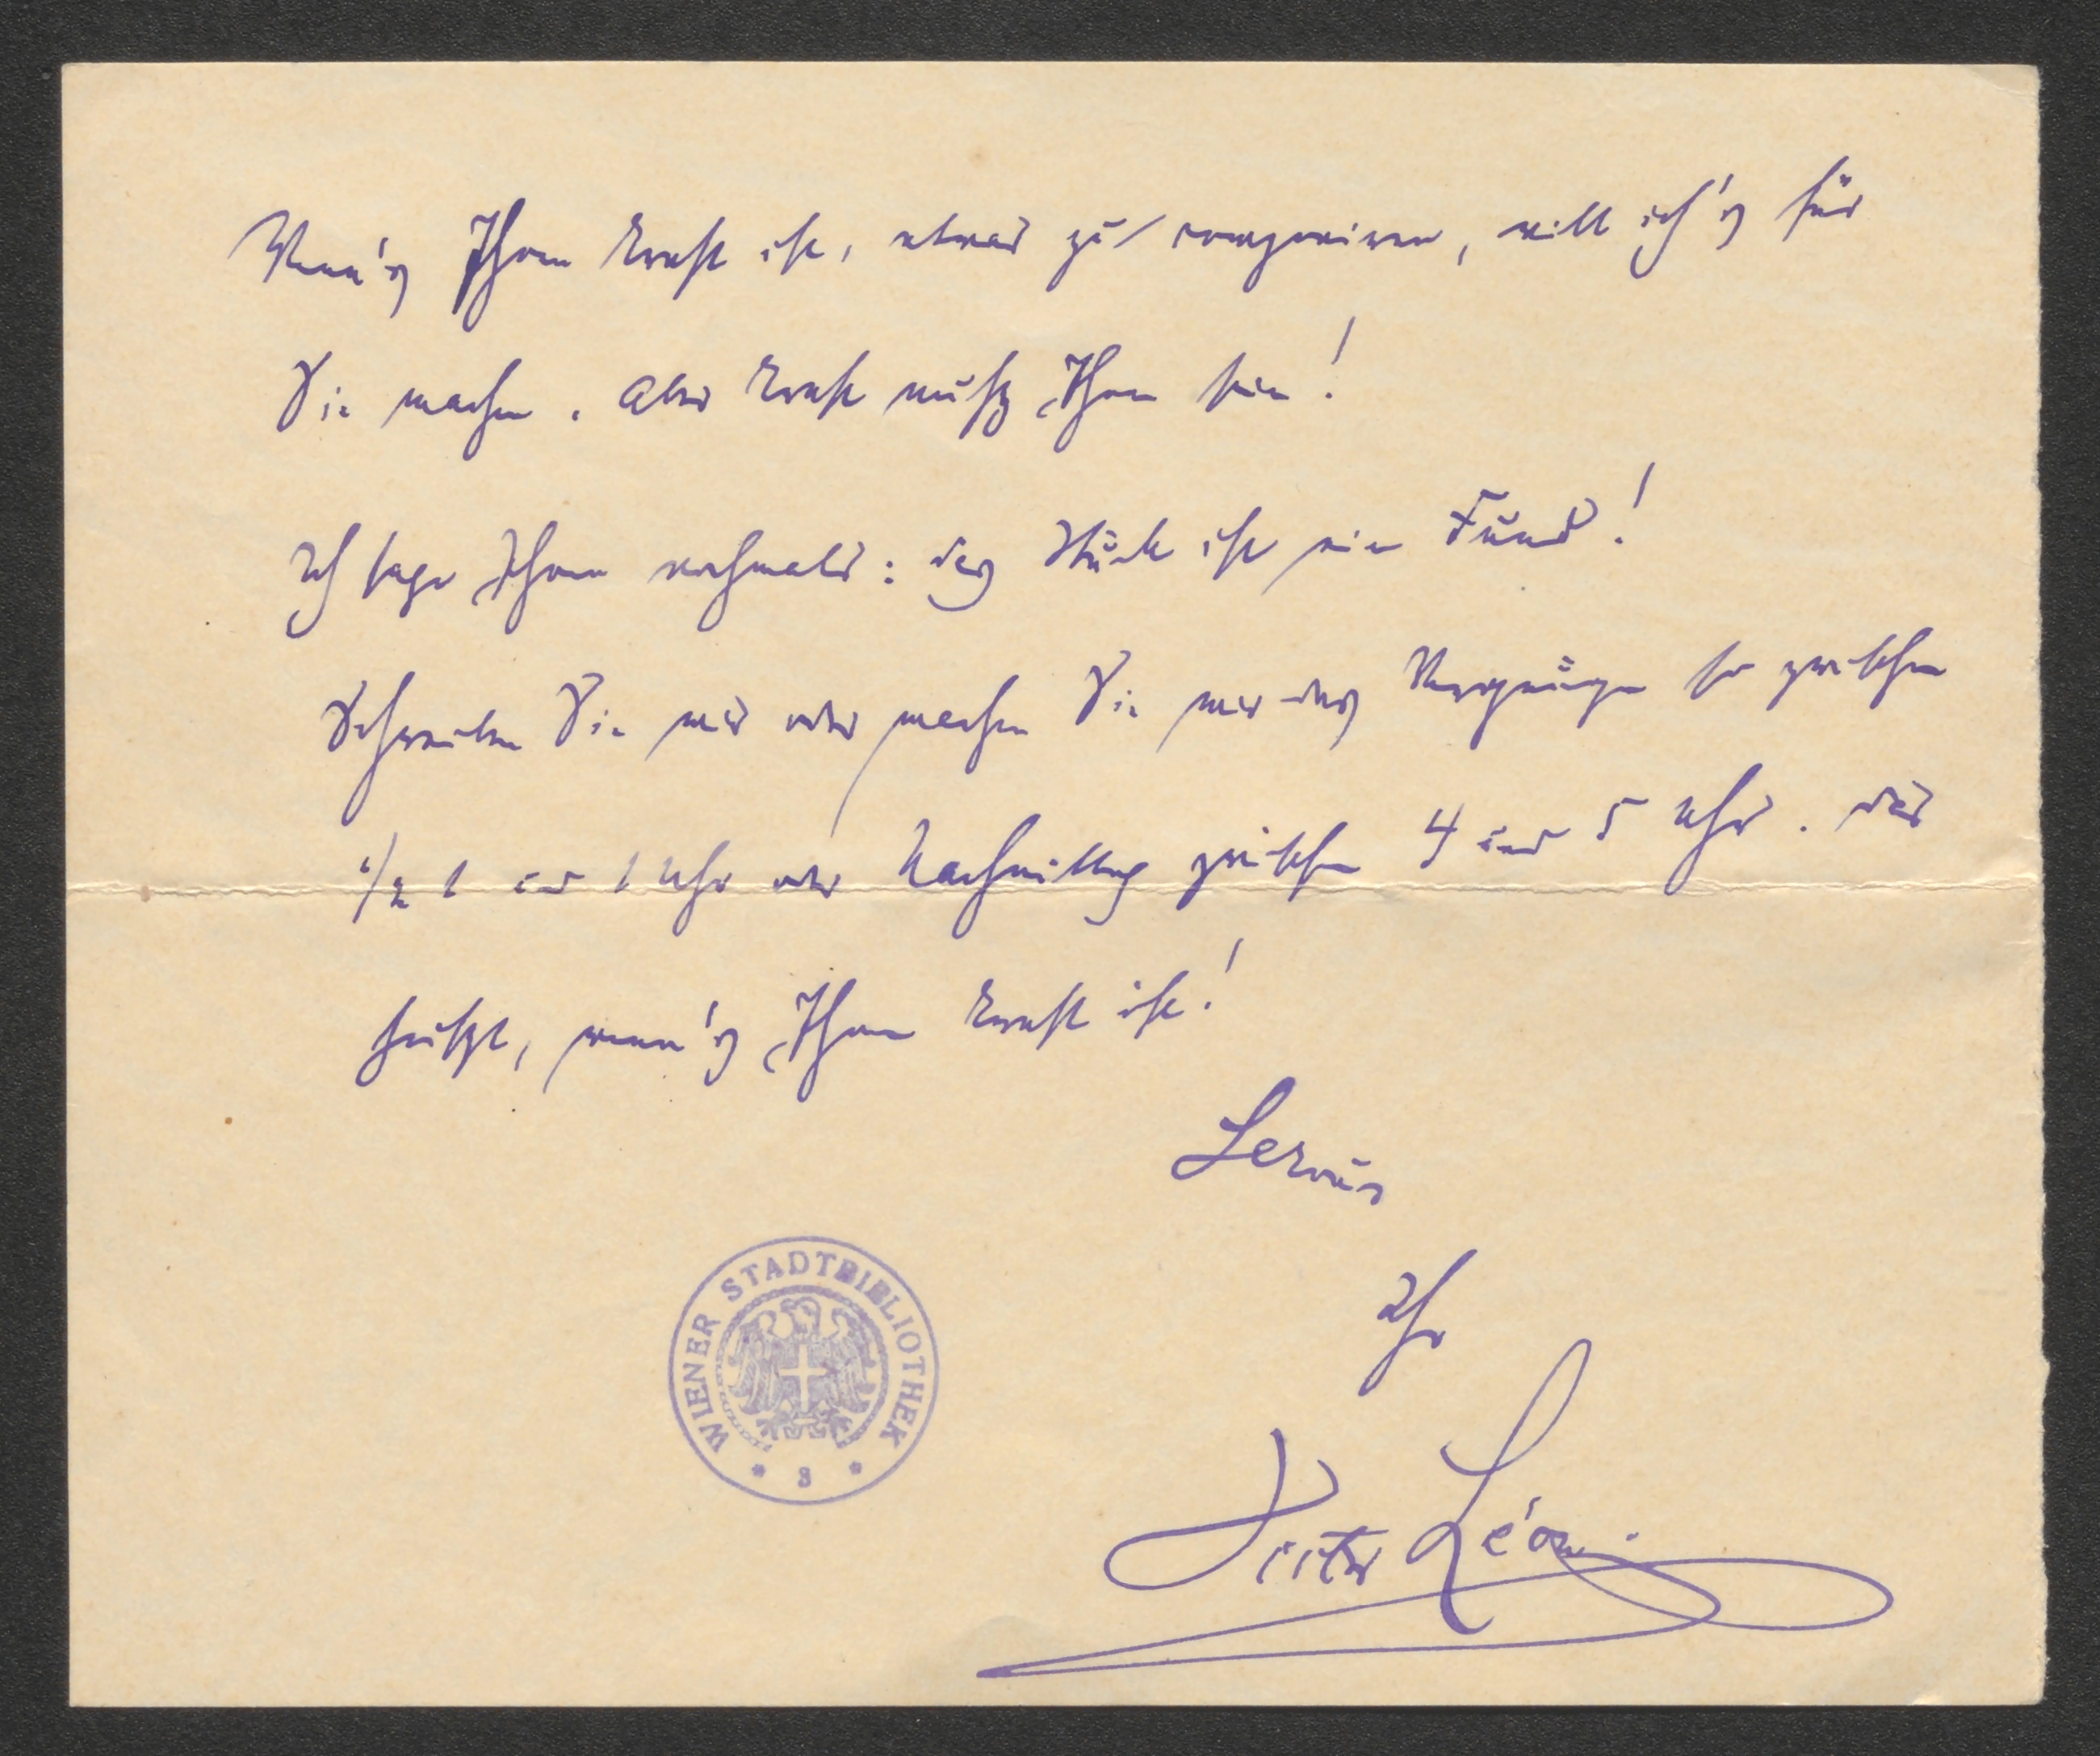 Wenn's Ihnen Ernst ist, etwas zu componiren, will ich's für
Sie machen. Aber Ernst muß Ihnen sein!
Ich sage Ihnen nochmals: das Stück ist ein Fund!
Schreiben Sie mir oder machen Sie mir das Vergnügen so zwischen
1/2 1 und 1 Uhr oder Nachmittag zwischen 4 und 5 Uhr. Das
heißt, wenn's Ihnen Ernst ist!
Servus
Ihr
Victor Léon.
WIENER STADTBIBLIOTHEK
* 3 *